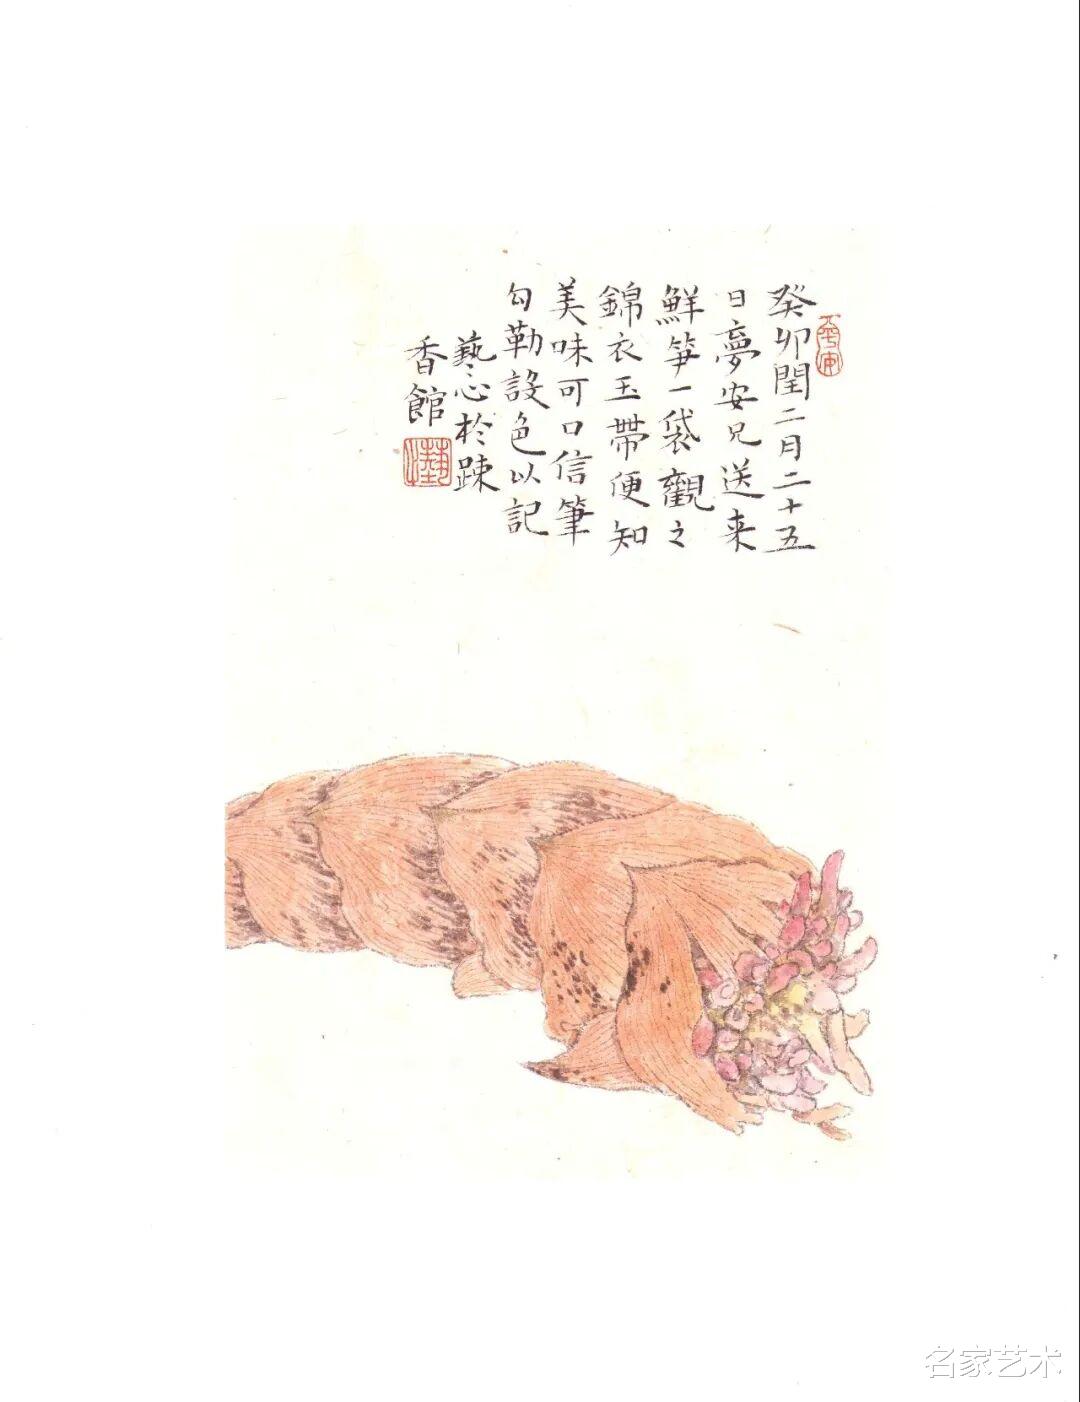 癸卯閏二月二十五
日夢安兄送来
鮮笋一袋觀之
錦衣玉帶便知
美味可口信筆
勾勒設色以記
藝心於踈
香館
平安
名家艺术